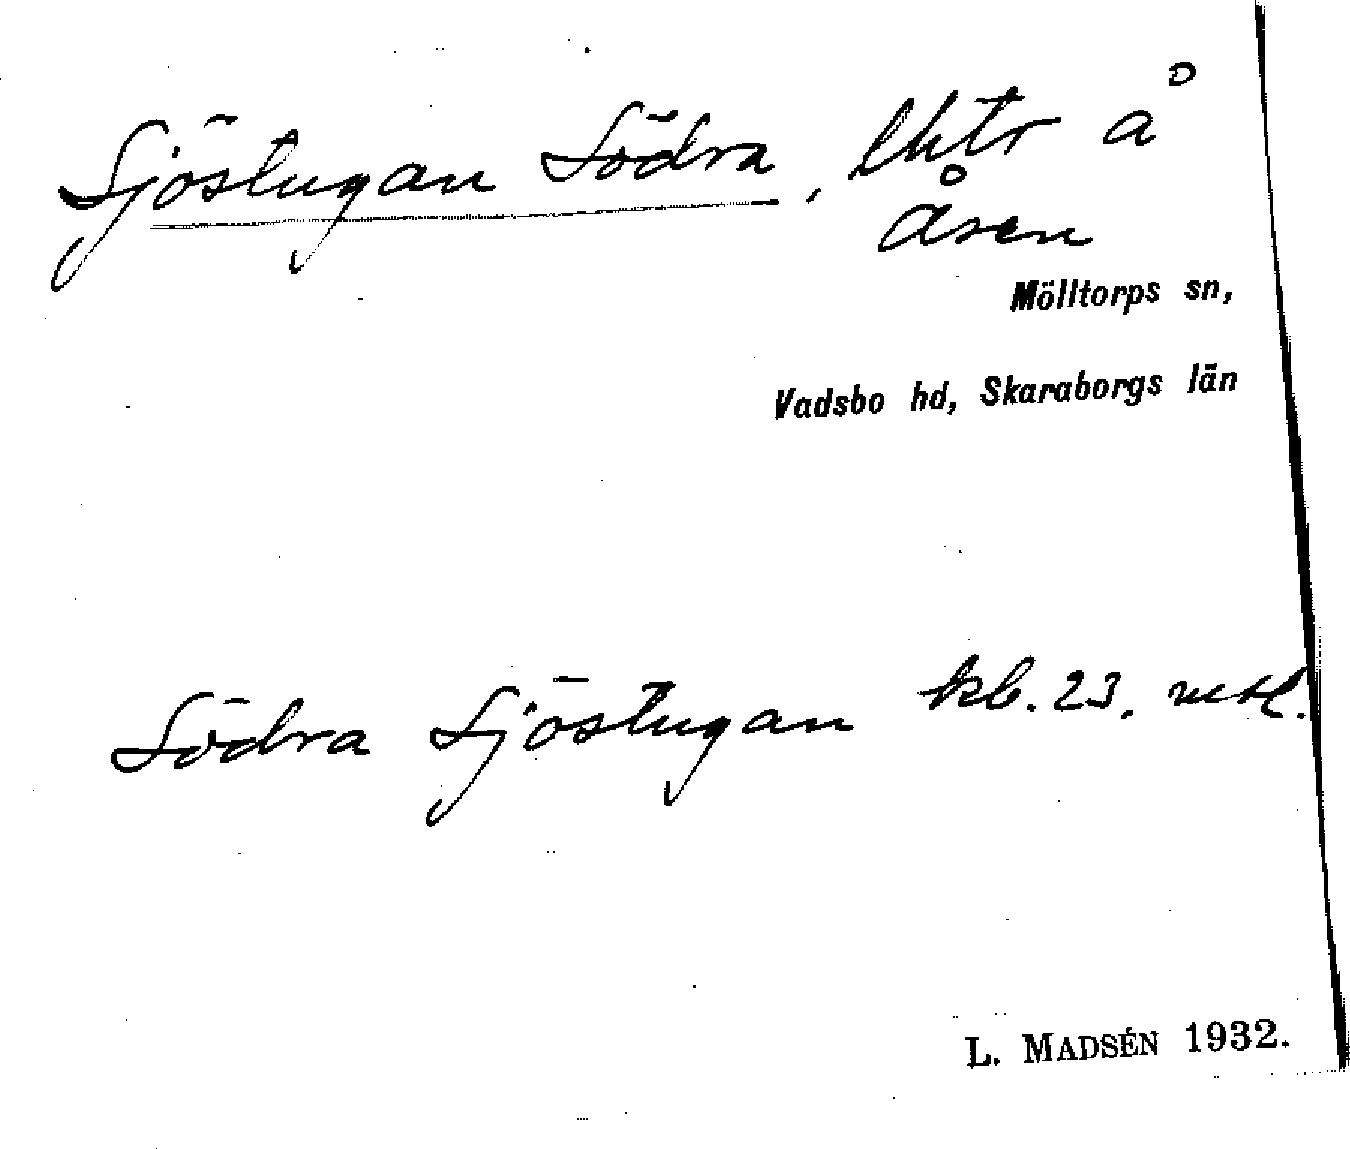 Sjöstugan Södra, lhtr å
Åsen
Mölltorps sn,
Vadsbo hd, Skaraborgs län
Södra Sjöstugan kb. 23.
L. MADSÉN 1932.